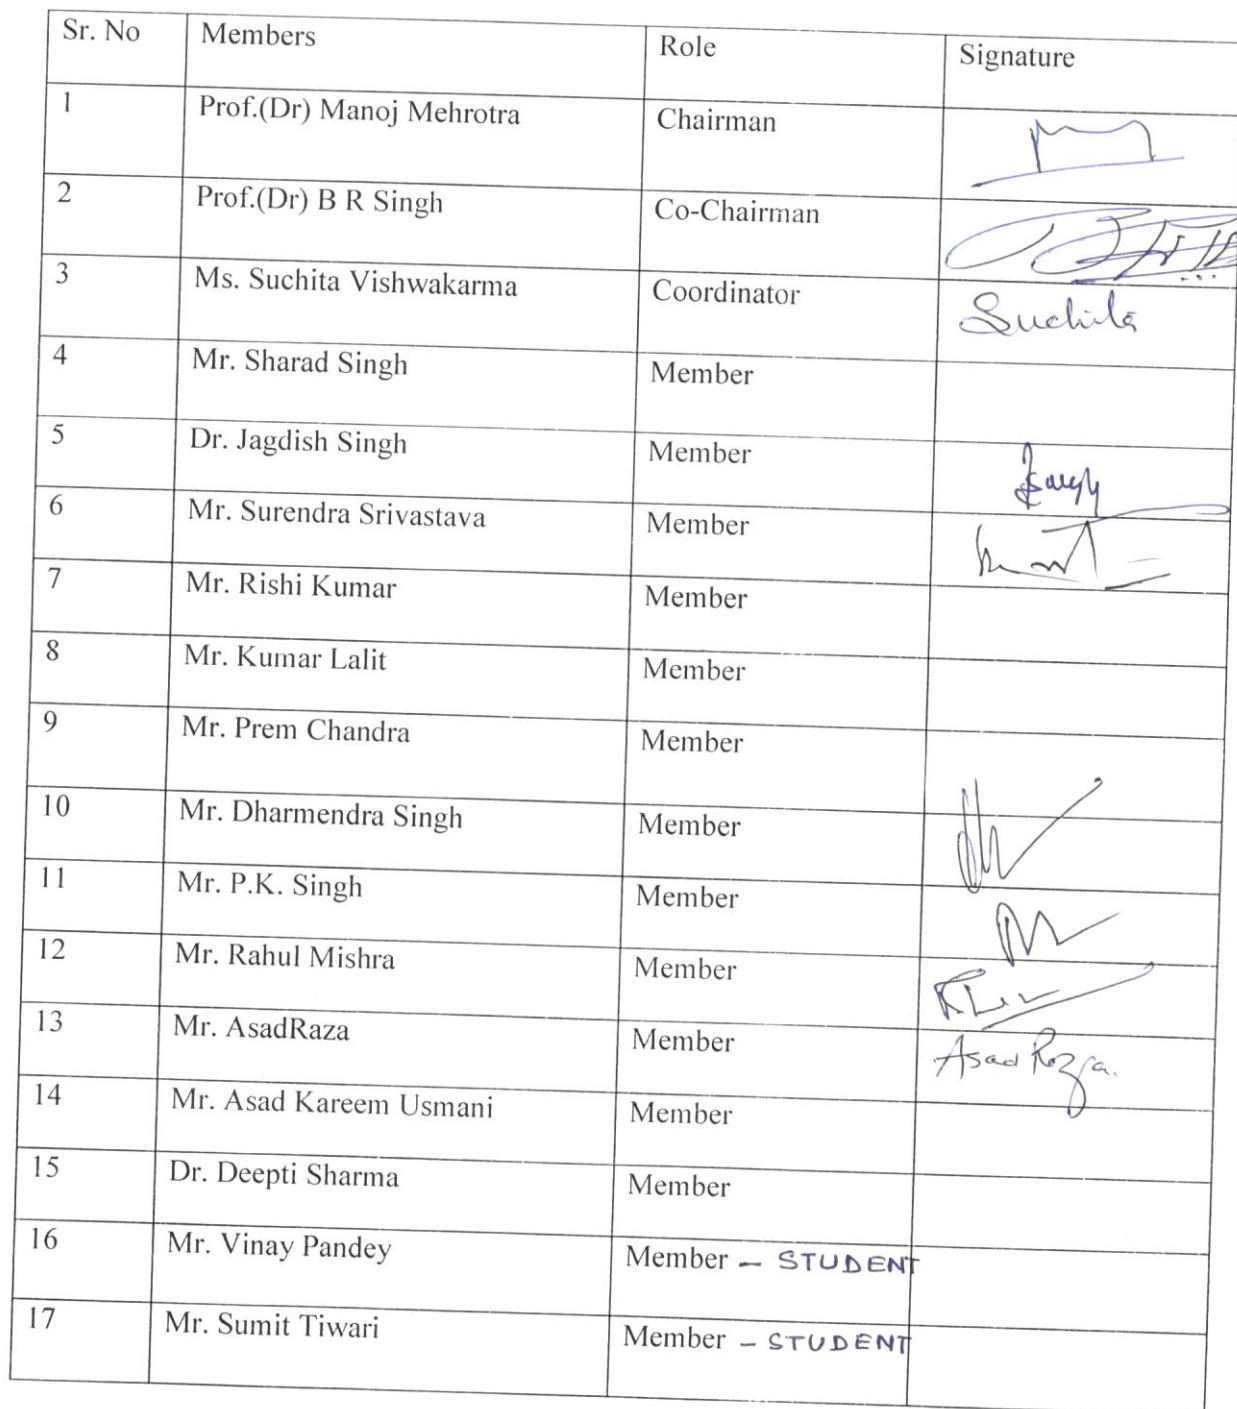 Sr. No Members Role Signature
1 Prof.(Dr) Manoj Mehrotra Chairman
2 Prof.(Dr) B R Singh Co-Chairman
3 Ms. Suchita Vishwakarma Coordinator Suchita
4 Mr. Sharad Singh Member
5 Dr. Jagdish Singh Member
6 Mr. Surendra Srivastava Member
7 Mr. Rishi Kumar Member
8 Mr. Kumar Lalit Member
9 Mr. Prem Chandra Member
10 Mr. Dharmendra Singh Member
11 Mr. P.K. Singh Member
12 Mr. Rahul Mishra Member
13 Mr. AsadRaza Member Asad Raza.
14 Mr. Asad Kareem Usmani Member
15 Dr. Deepti Sharma Member
16 Mr. Vinay Pandey Member – STUDENT
17 Mr. Sumit Tiwari Member – STUDENT